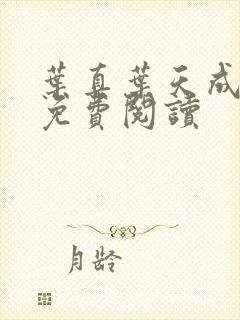 葉真葉天成
免費閱讀
月齡